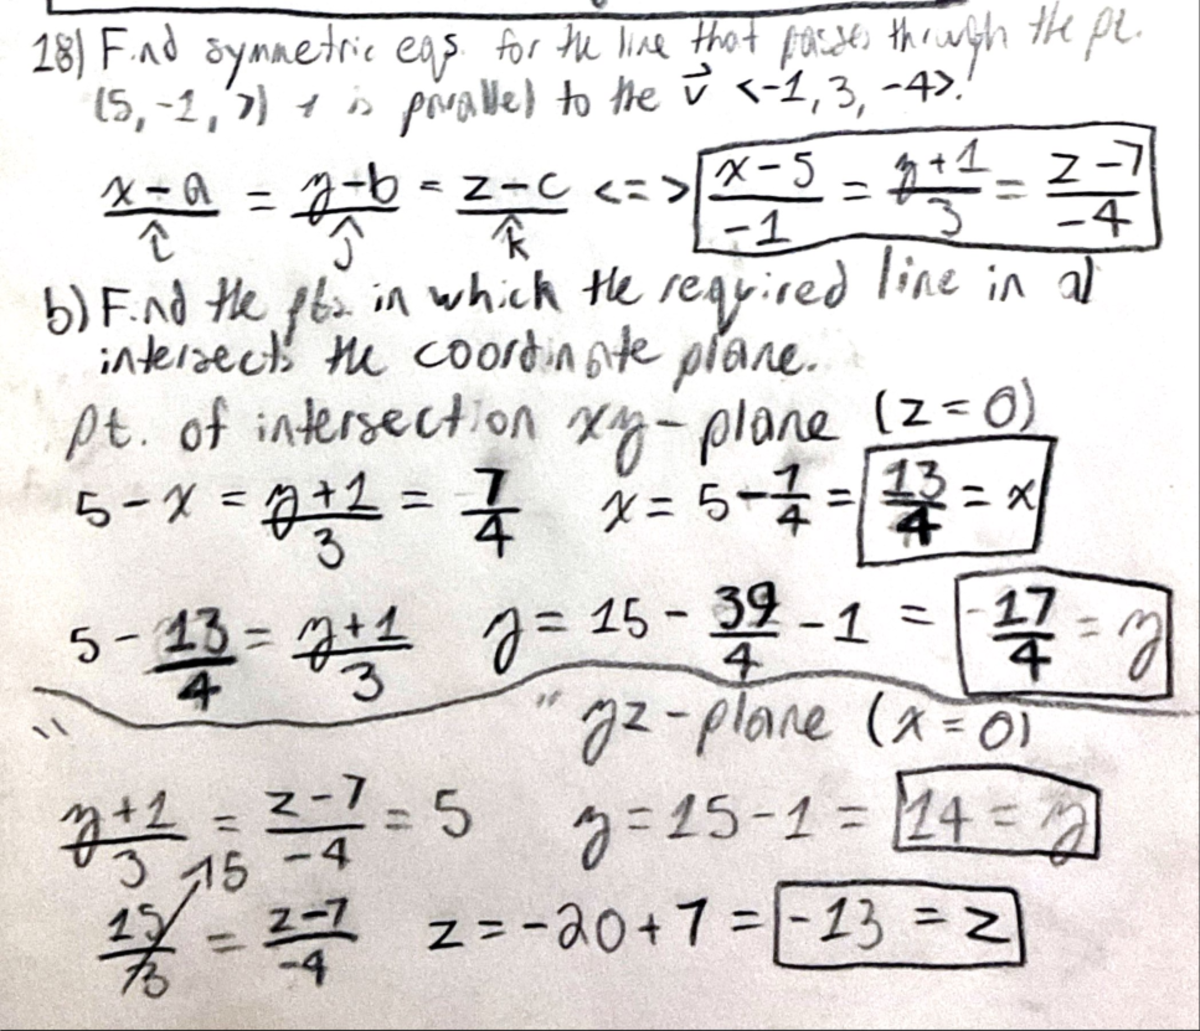 18) Find symmetric eqs. for the line that passes through the pt.
(5, -1, 7) + is parallel to the v⃗ <-1, 3, -4>.
(x-a)/î = (y-b)/ĵ = (z-c)/k̂ <=> (x-5)/-1 = (y+1)/3 = (z-7)/-4
b) Find the pts in which the required line in a)
intersects the coordinate plane.
Pt. of intersection xy-plane (z=0)
5-x = (y+1)/3 = 7/4   x = 5 - 7/4 = 13/4 = x
5 - 13/4 = (y+1)/3   y = 15 - 39/4 - 1 = 17/4 = y
" " yz-plane (x=0)
(y+1)/3 = (z-7)/-4 = 5   y = 15-1 = 14 = y
15/3 ↗15 = (z-7)/-4   z = -20+7 = -13 = z